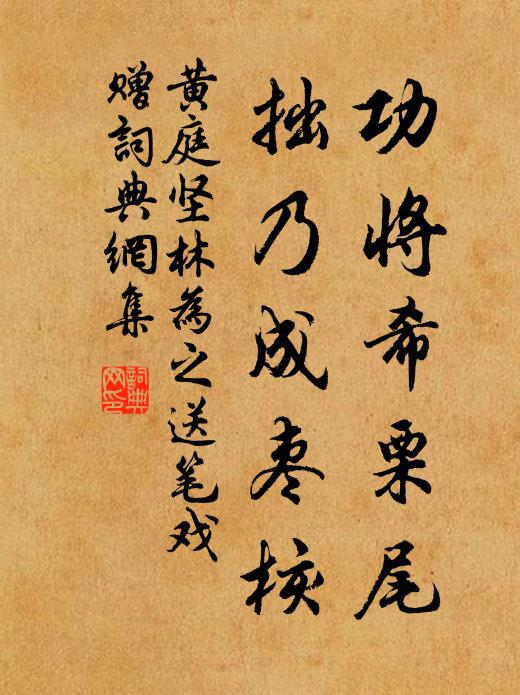 功将希栗尾
拙乃成枣核
黄庭坚林为之送笔戏
赠詞典網集
詞典
网印